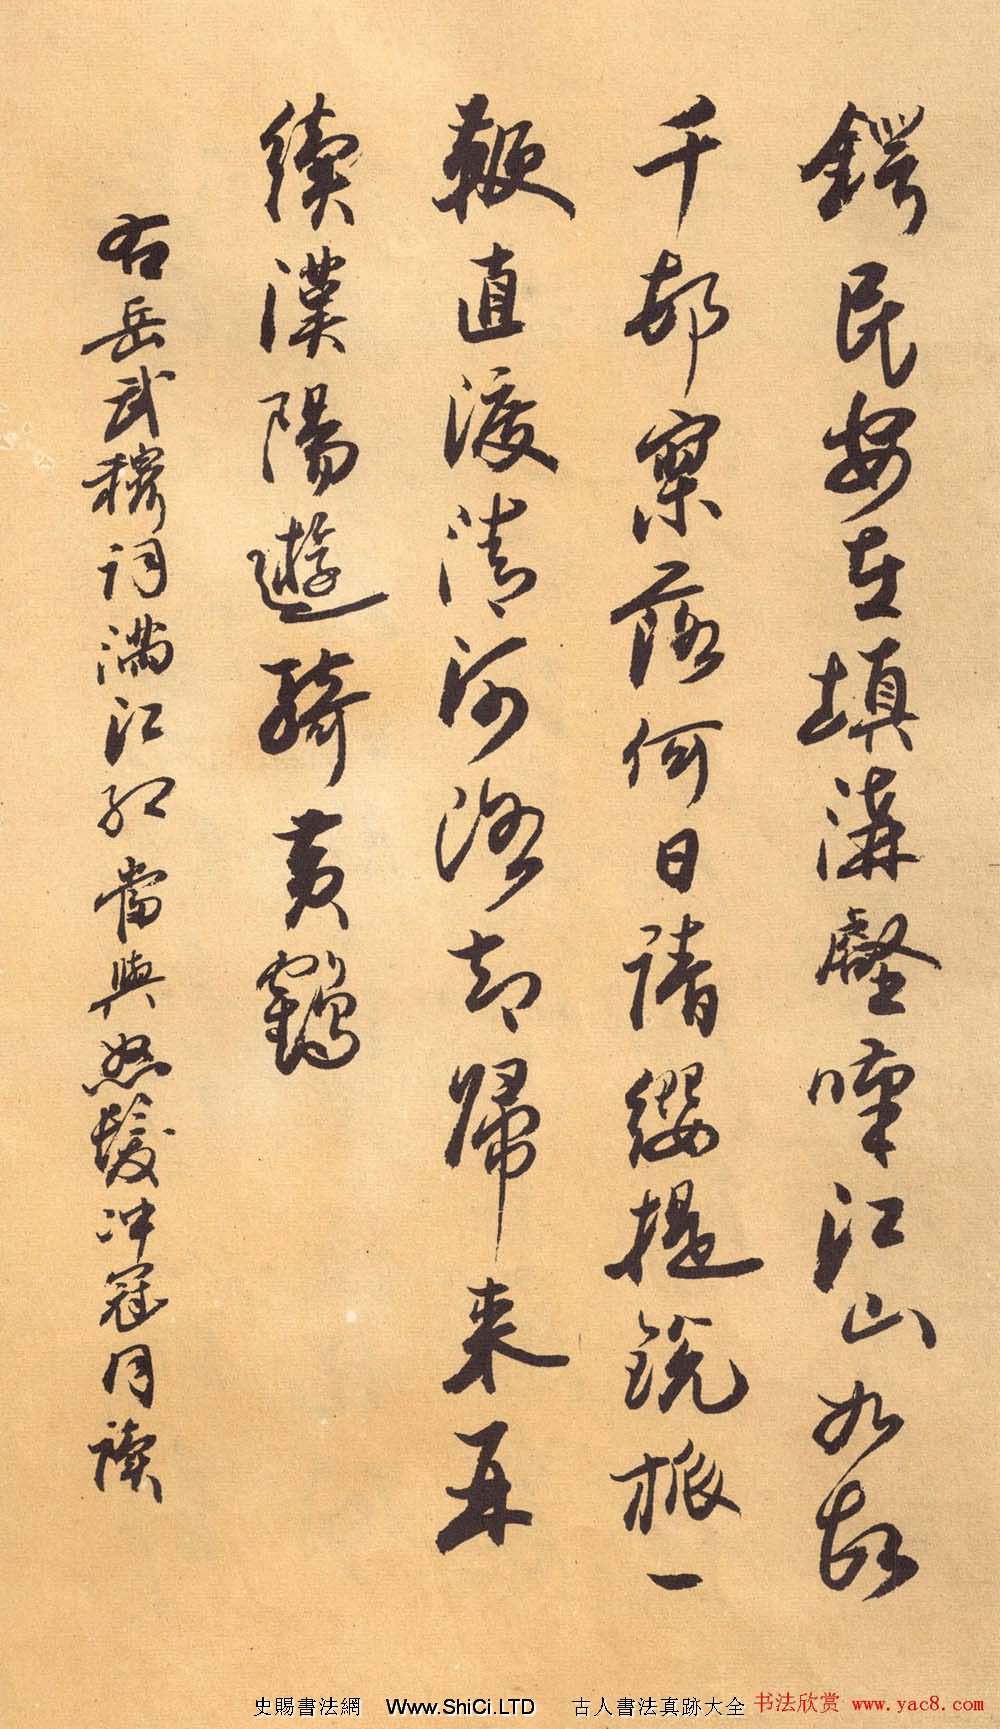 鍔民安在填溝壑嘆江山如故
千邨寥落何日請纓提銳旅一
鞭直渡清河洛却歸來再
續漢陽遊騎黄鶴
右岳武穆詞滿江紅當與怒髮冲冠同讀
史賜書法網 Www.ShiCi.LTD 古人書法真跡大全 书法欣赏 www.yac8.com